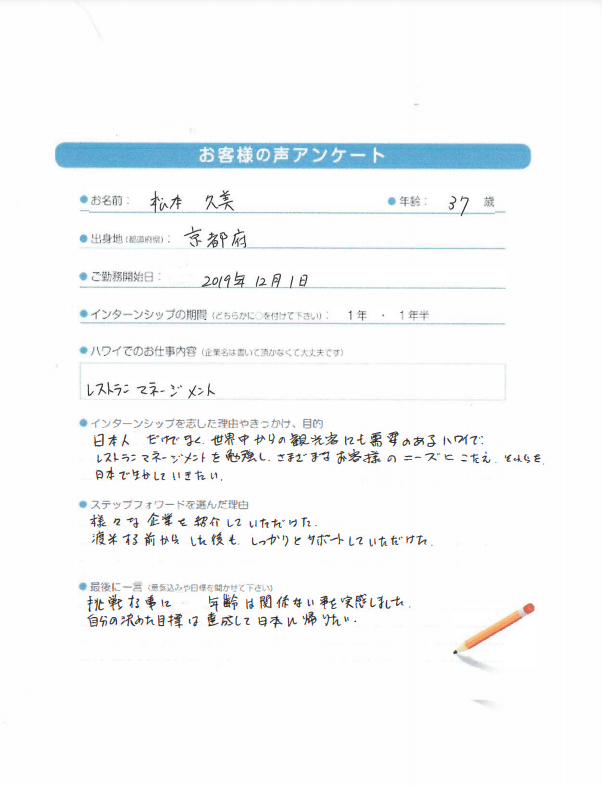 お客様の声アンケート
お名前： 松本 久美 年齢： 37 歳
出身地（都道府県）： 京都府
ご勤務開始日： 2019年12月1日
インターンシップの期間（どちらかに○を付けて下さい）： 1年 ・ 1年半
ハワイでのお仕事内容（企業名は書いて頂かなくて大丈夫です）
レストラン マネージメント
インターンシップを志した理由やきっかけ、目的
日本人 だけでなく、世界中からの観光客にも需要のあるハワイで、
レストランマネージメントを勉強し、さまざまなお客様のニーズにこたえ、それらを、
日本で生かしていきたい。
ステップフォワードを選んだ理由
様々な企業を紹介していただけた。
渡米する前から した後も、しっかりとサポートしていただけた。
最後に一言（意気込みや目標を聞かせて下さい）
挑戦する事に 年齢は関係ない事を実感しました。
自分の決めた目標は達成して日本に帰りたい。